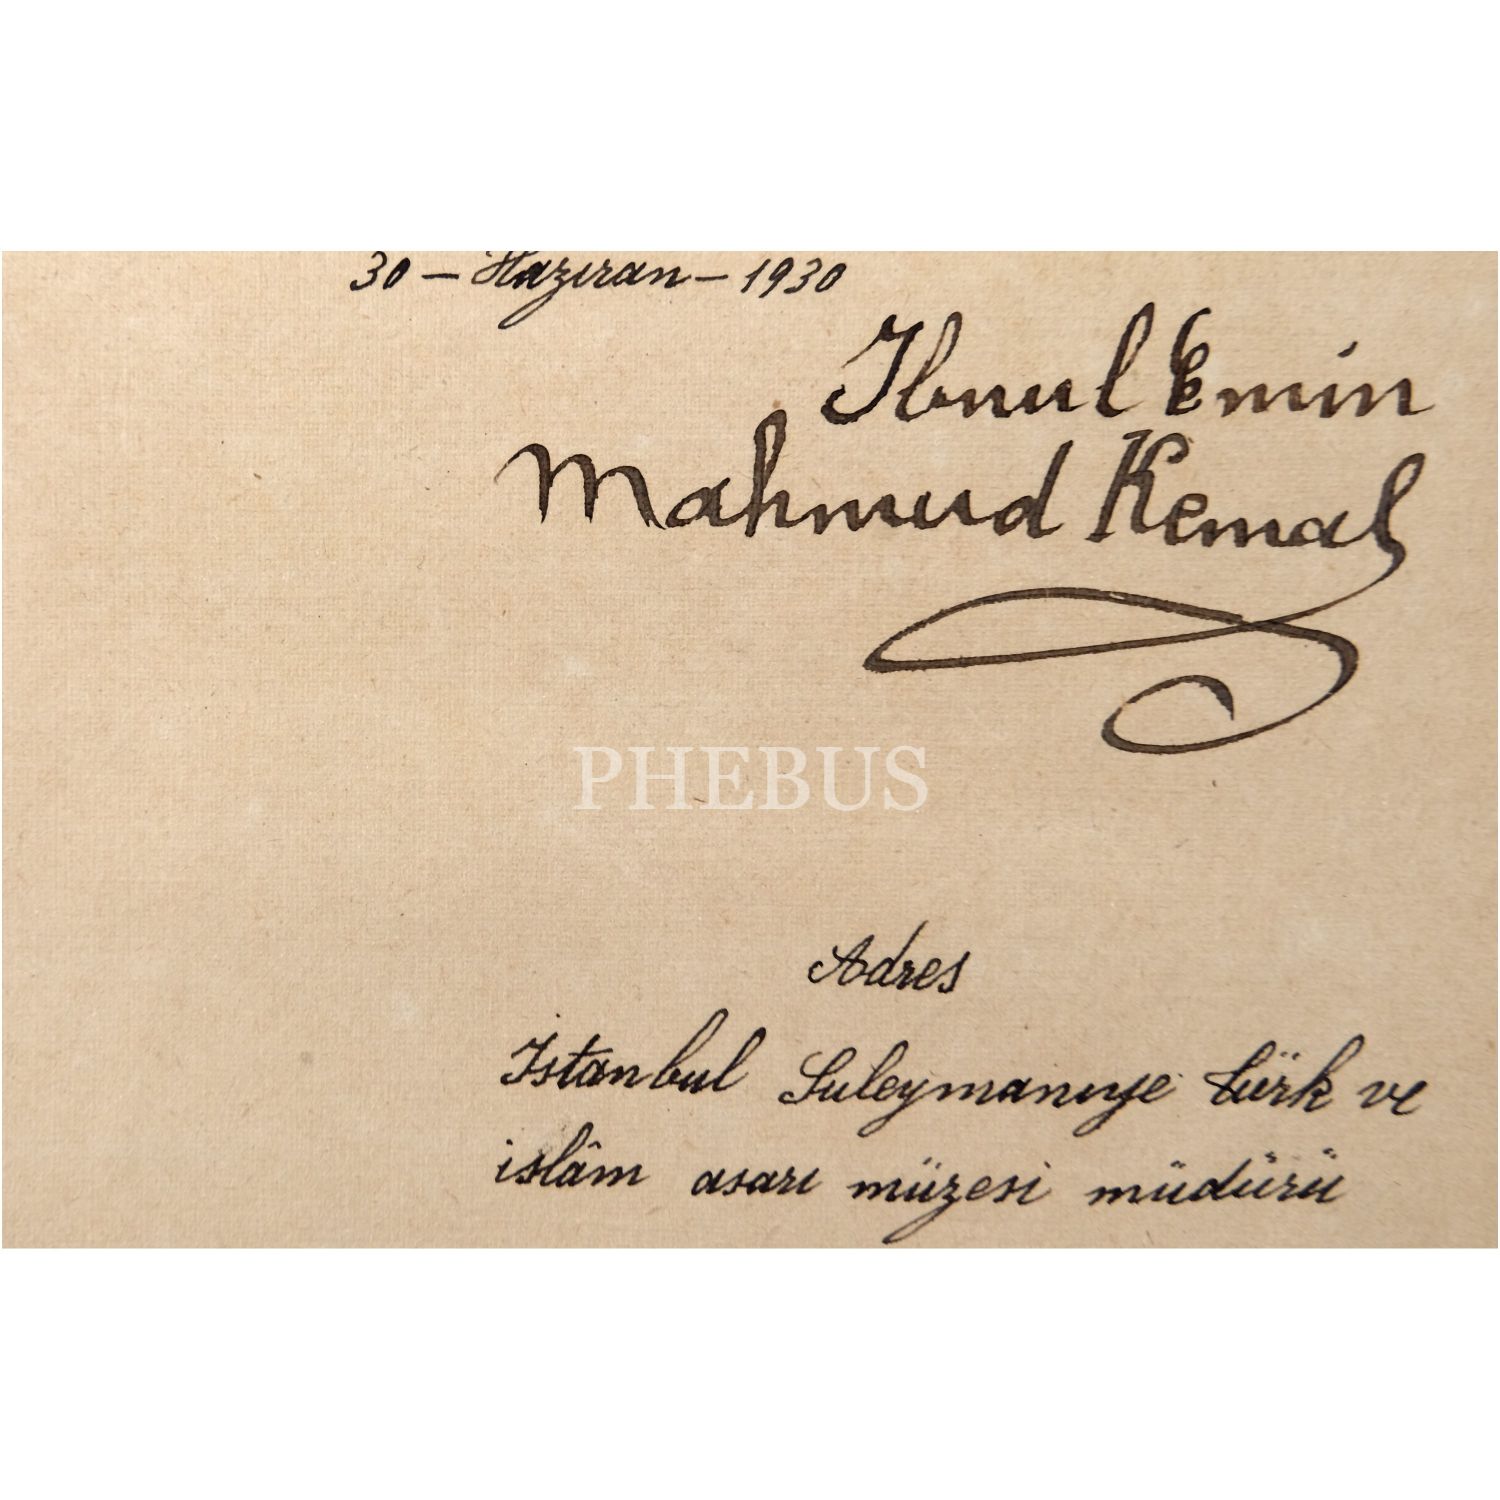 30 – Haziran – 1930
Ibnul Emin
Mahmud Kemal
PHEBUS
Adres
İstanbul Suleymaniye türk ve
islâm asarı müzesi müdürü